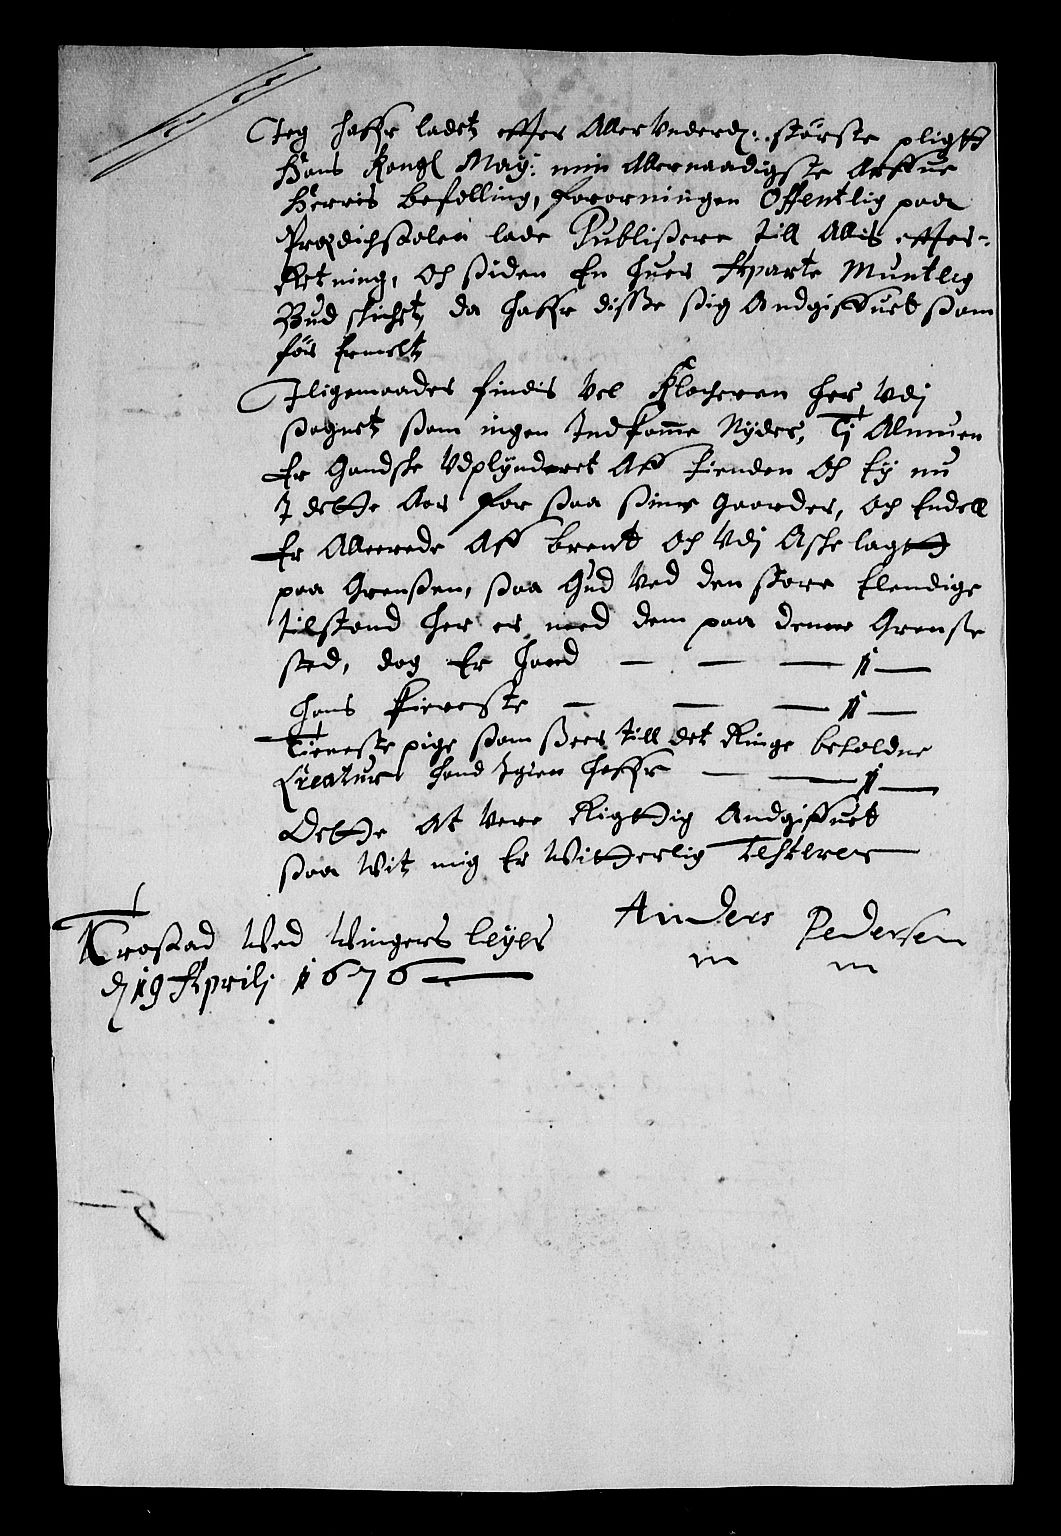 Jeg haffr ladet effter Allerunderd: største pligtt
Hans Kongl May: min Allernaadigste Arffue
Herris befalling, fororningen Offentlig paa
Prædichstolen lade Publissere till Allis effter-
Retning, Och siden En huer Aparte Muntlig
Bud skichet, da haffr disse sig Andgiffuet som
för ermelt
Jligemaades findis vel Klocheren her Vdj
sognet som ingen Indkomme Nyder, Tj Almuen
Er Gandske Vdplynderet Aff Fienden Och Ej nu
J dette Aar for saa sine Gaarder, och Endell
Er Allerede Aff brent och Vdj Aske lagtt
paa Grensen, saa Gud Ved den store Elendige
tilstand her er med dem paa denne Grense
sted, dog Er hand — — — 1 —
hans Fieneste — — — 1 —
Tieneste pige som sees till det Ringe beholdne
Creaturs hand Igien haffr — — 1 —
Dette At vere Rigttig Andgiffuet
saa Vit mig Er Witterlig Testerer
Anders Pedersen
m m
Krostad Wed Wingers Leyer
d 19 Aprilj 1676